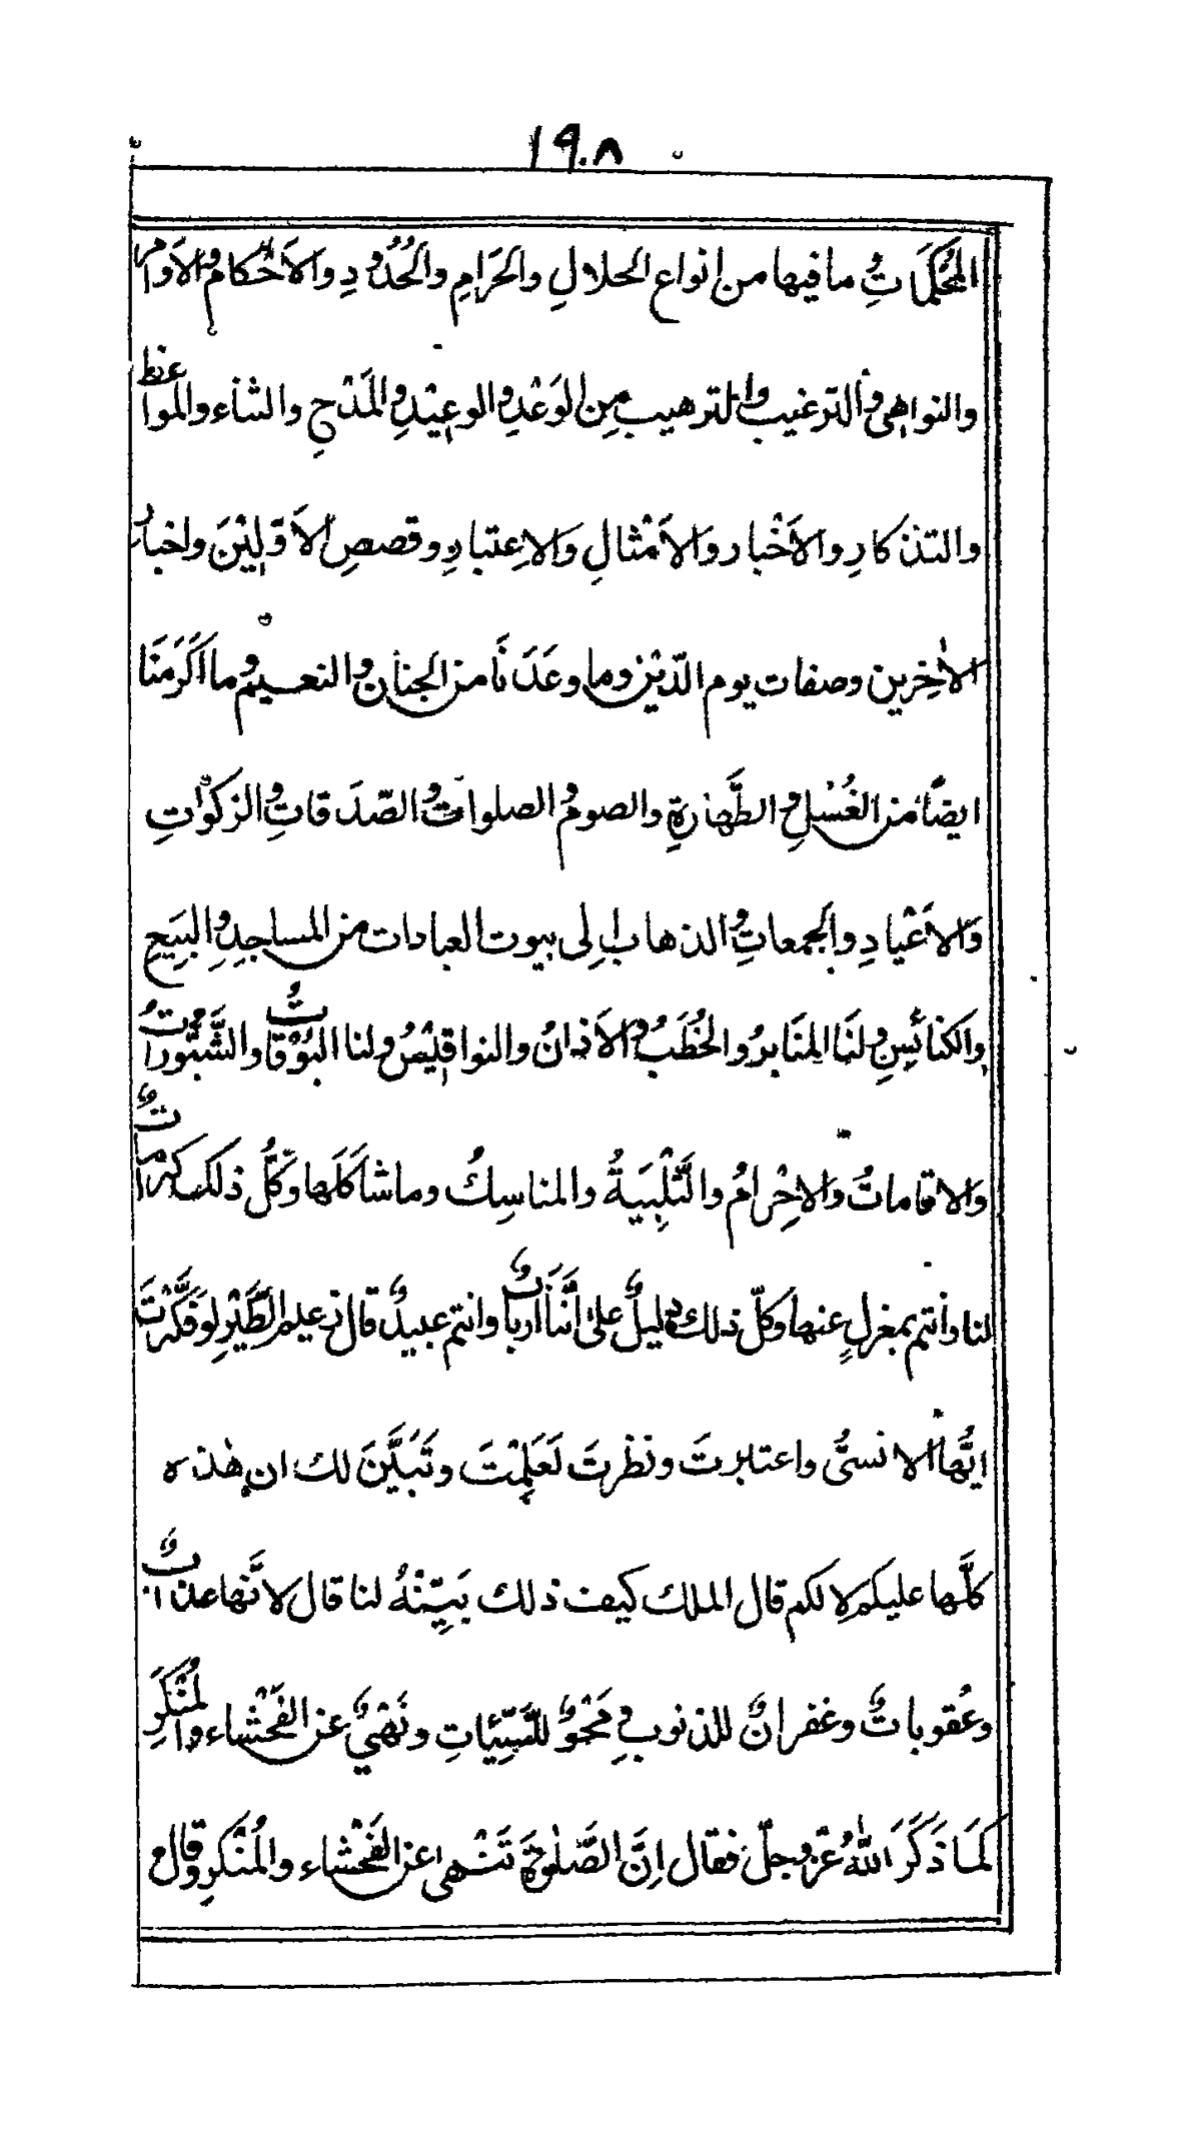 ١٩٠٨
المُحْكَمَاتِ وما فيها من انواع الحلالِ والحَرَامِ والحُدُودِ والاَحْكام والاَوامر
والنواهى والترغيب والترهيب مِن الوَعْدِ والوعِيْدِ والمَدْحِ والثناء والمواعظ
والتذكارِ والاَخْبار والاَمْثالِ والاِعتبارِ وقصصِ الاَوّلِيْنَ واخبار
الاٰخِرين وصفات يوم الدّيْن وما وعَدَنَا من الجنان والنعيم وما اَكْرَمَنَا
ايضًا من الغُسْلِ والطَّهارةِ والصوم والصلوات والصّدَقاتِ والزكوٰاتِ
وَالاَعْيادِ والجمعاتِ والذهاب اِلى بيوت العبادات من المساجِدِ والبِيَعِ
والكنائسِ ولنَا المنَابرُ والخُطَبُ والاَذانُ والنواقِيْسُ ولنا البُوْقاتُ والشَّبُّوراتُ
وَالاقاماتُ وَالاِحْرامُ والتَّلْبِيَةُ والمناسِكُ وما شاكَلَها وَكُلُّ ذلك كراماتٌ
لنا وانتم بمغزلٍ عنها وكلّ ذلك دليلٌ على اَنَّنَا اربابٌ وانتم عبيدٌ قال زعيم الطَّيْرِ لو فَكَّرْتَ
ايُّها الانسىُّ واعتبرتَ ونظرتَ لَعَلِمْتَ وتَبَيَّنَ لك ان هٰذه
كلَّها عليكم لا لكم قال الملك كيف ذلك بَيِّنْهُ لنا قال لانَّها عذابٌ
وعُقوباتٌ وغفرانٌ للذنوب ومَحْوٌ للسَّيِّئاتِ ونَهْيٌ عن الفَحْشاء والمُنْكَرِ
كمَا ذَكَرَ اللهُ عزّ وجلّ فقال اِنَّ الصَّلٰوةَ تَنْهى عن الفَحْشاء والمُنْكَرِ وقال